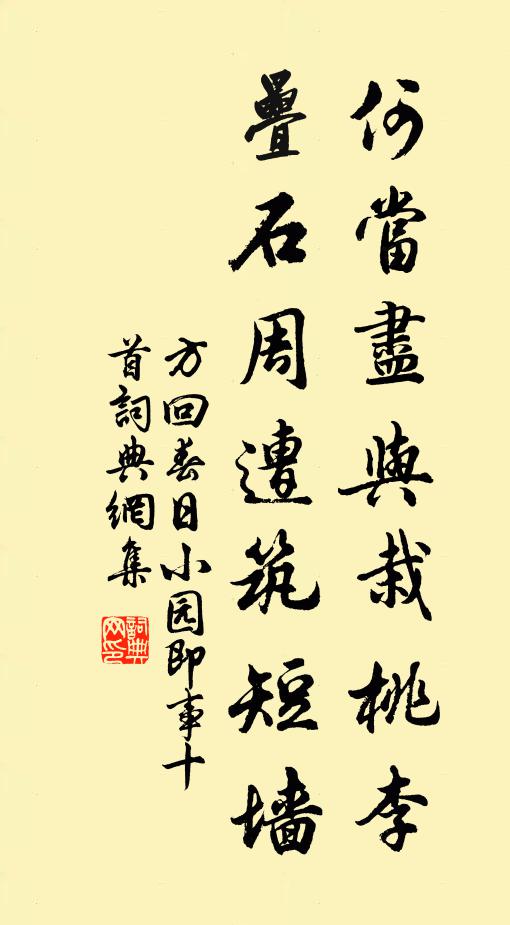 何當盡與栽桃李
疊石周遭筑短墙
方回春日小园即事十
首詞典網集
詞典
网印